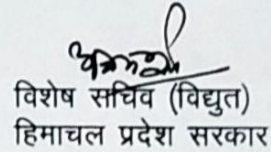 विशेष सचिव (विद्युत)
हिमाचल प्रदेश सरकार